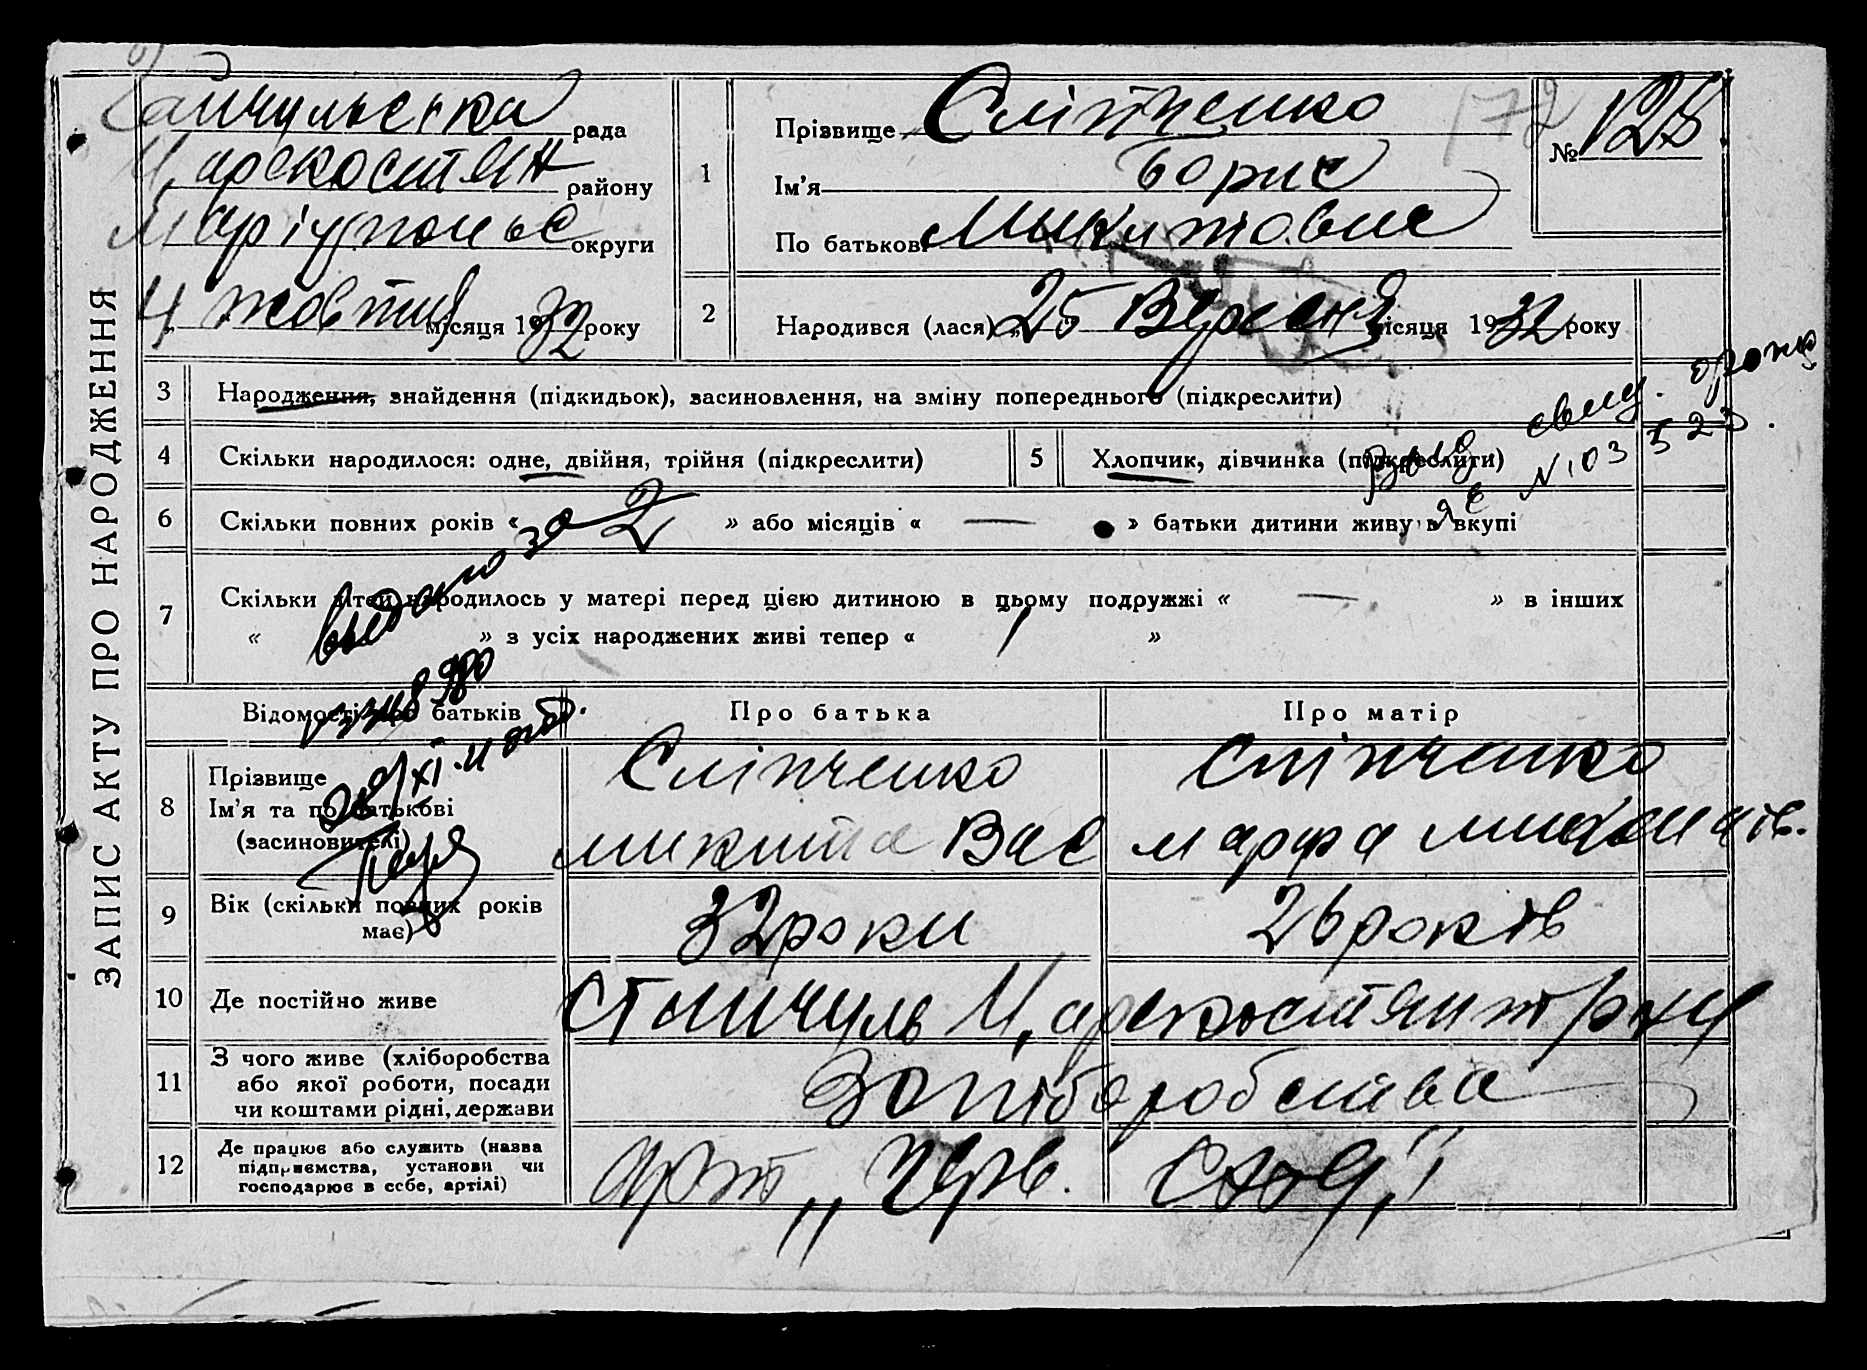 ЗАПИС АКТУ ПРО НАРОДЖЕННЯ
рада
району
округи
4 жовтня місяця 1932 року
1 Прізвище Сліпченко
Ім'я Борис
По батькові Микитович
172
№ 128
2 Народився (лася) „25 Вересня місяця 1932 року
3 Народження, знайдення (підкидьок), засиновлення, на зміну попереднього (підкреслити)
4 Скільки народилося: одне, двійня, трійня (підкреслити)
5 Хлопчик, дівчинка (підкреслити)
№ 103523
6 Скільки повних років « 2 » або місяців « — » батьки дитини живуть вкупі
7 Скільки дітей народилось у матері перед цією дитиною в цьому подружжі « — » в інших
« » з усіх народжених живі тепер « »
Відомості про батьків
Про батька
Про матір
8 Прізвище
Ім'я та по батькові
(засиновителі)
Сліпченко
микита Вас
Сліпченко
марфа
9 Вік (скільки повних років
має)
32 роки
26 років
10 Де постійно живе
11 З чого живе (хліборобства
або якої роботи, посади
чи коштами рідні, держави
12 Де працює або служить (назва
підприємства, установи чи
господарює в себе, артілі)
арт „Черв.